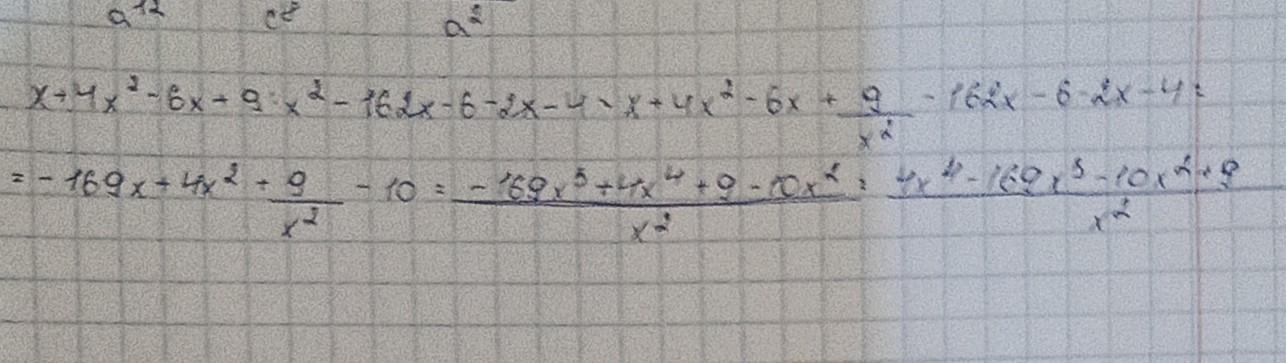 a¹² c⁸ a²
x+4x²-6x+9:x²-162x-6-2x-4 = x+4x²-6x+9/x²-162x-6-2x-4=
=-169x+4x²+9/x²-10=(-169x³+4x⁴+9-10x²)/x²=(4x⁴-169x³-10x²+9)/x²